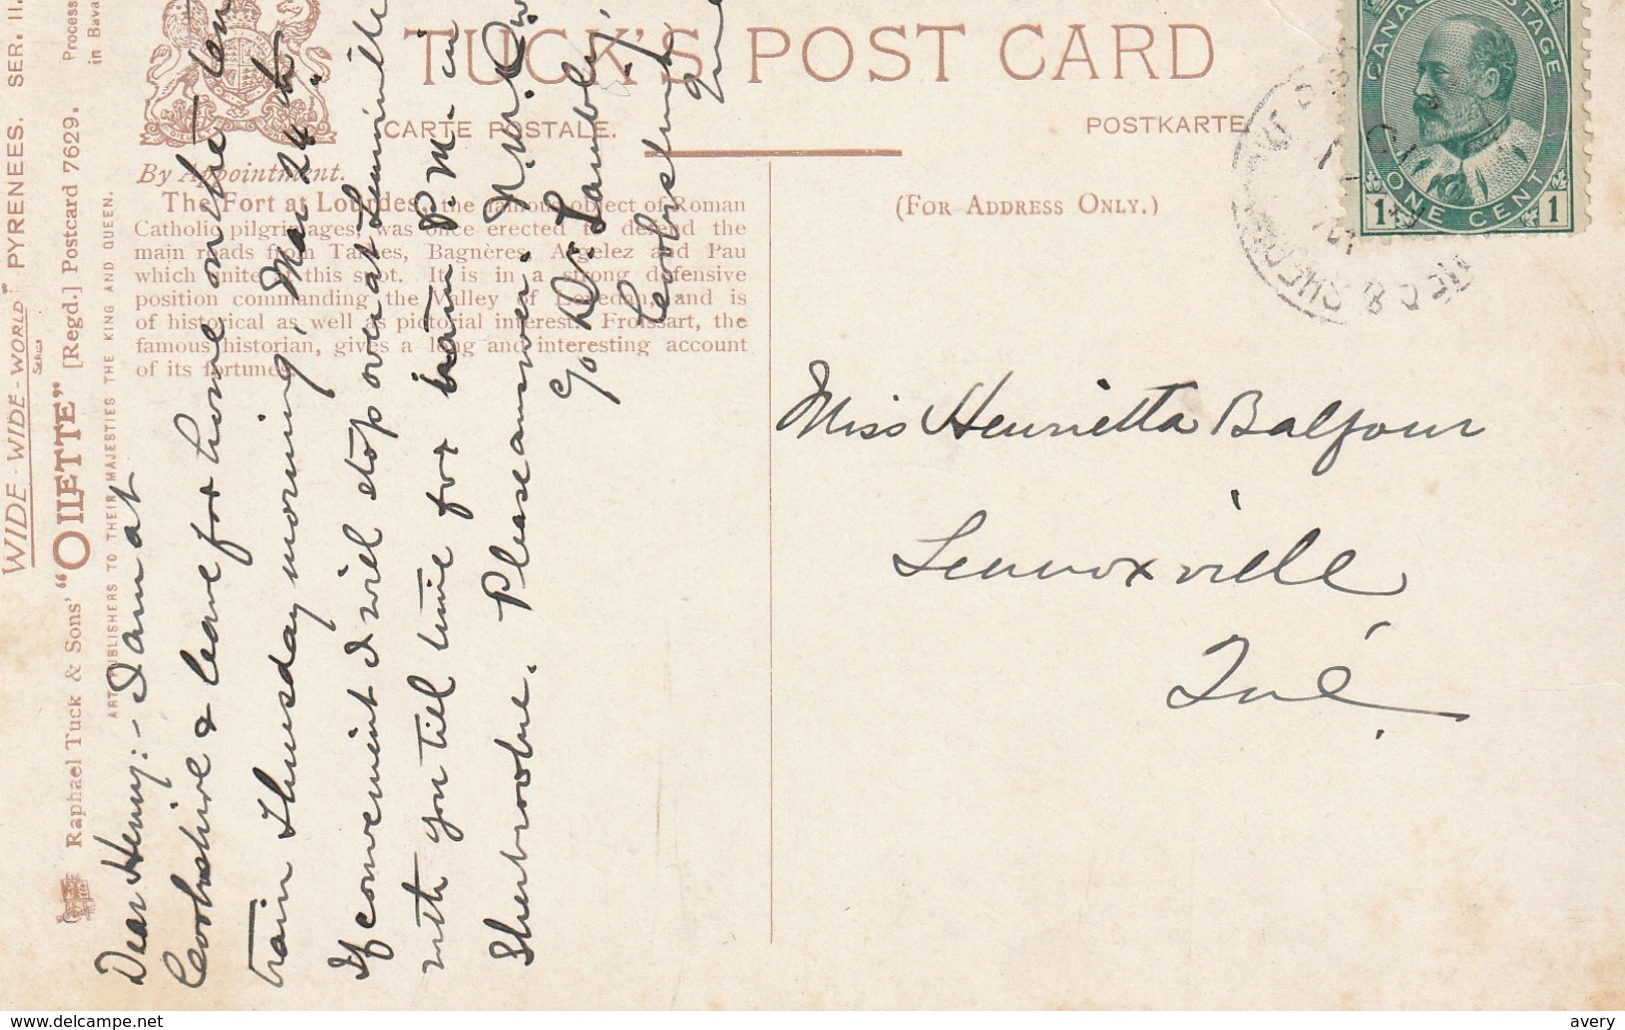 TUCK'S POST CARD
CARTE POSTALE.
POSTKARTE
By Appointment.
(FOR ADDRESS ONLY.)
The Fort at Lourdes, the famous object of Roman
Catholic pilgrimages, was once erected to defend the
main roads from Tarbes, Bagnères, Argelez and Pau
which unite at this spot. It is in a strong defensive
position commanding the Valley of Lavedan, and is
of historical as well as pictorial interest. Froissart, the
famous historian, gives a long and interesting account
of its fortunes.
WIDE-WIDE-WORLD" PYRENEES. SER. II.
Series
Raphael Tuck & Sons' "OILETTE" [Regd.] Postcard 7629.
Process
in Bava
ART PUBLISHERS TO THEIR MAJESTIES THE KING AND QUEEN.
Dear Henry:- I am at
Cookshire & leave for home on the
train Thursday morning, Mar 24th.
If convenient I will stop over at Lennoxville
with you till time for train P.M. in
Sherbrooke. Please answer.
c/o Dr. Lambly,
Cookshire
Que
CANADA POSTAGE
ONE CENT
1 1
REC & SHER
Miss Henrietta Balfour
Lennoxville
Qué.
delcampe.net
avery